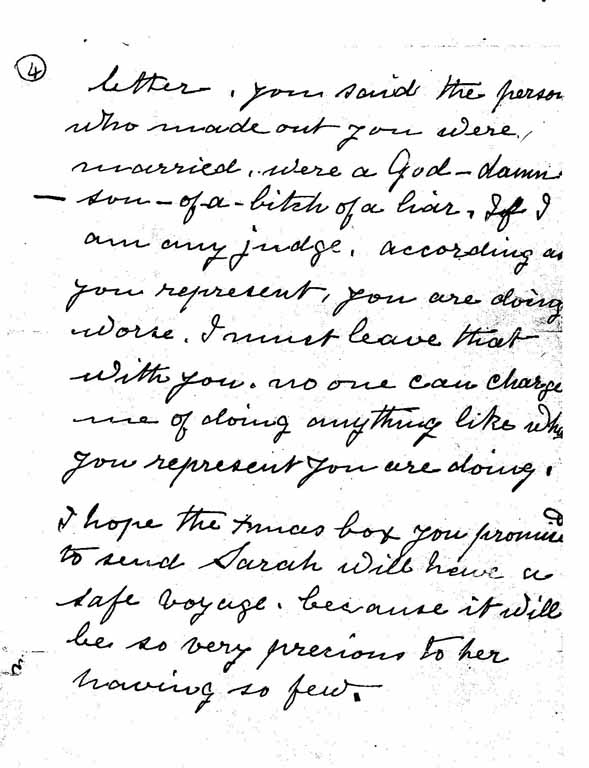 4
letter. you said the person
who made out you were,
married, were a God-damn
- son-of-a-bitch of a liar. If I
am any judge. according as
you represent, you are doing
worse. I must leave that
with you. no one can charge
me of doing anything like wha
you represent you are doing.
I hope the Xmas box you promised
to send Sarah will have a
safe voyage. because it will
be so very precious to her
having so few.